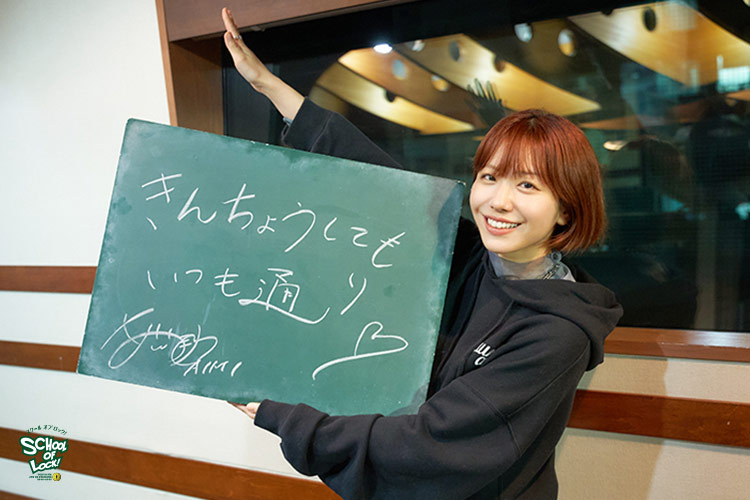 きんちょうしても
いつも通り
AIMI
スクール オブ ロック!
SCHOOL
OF
LOCK!